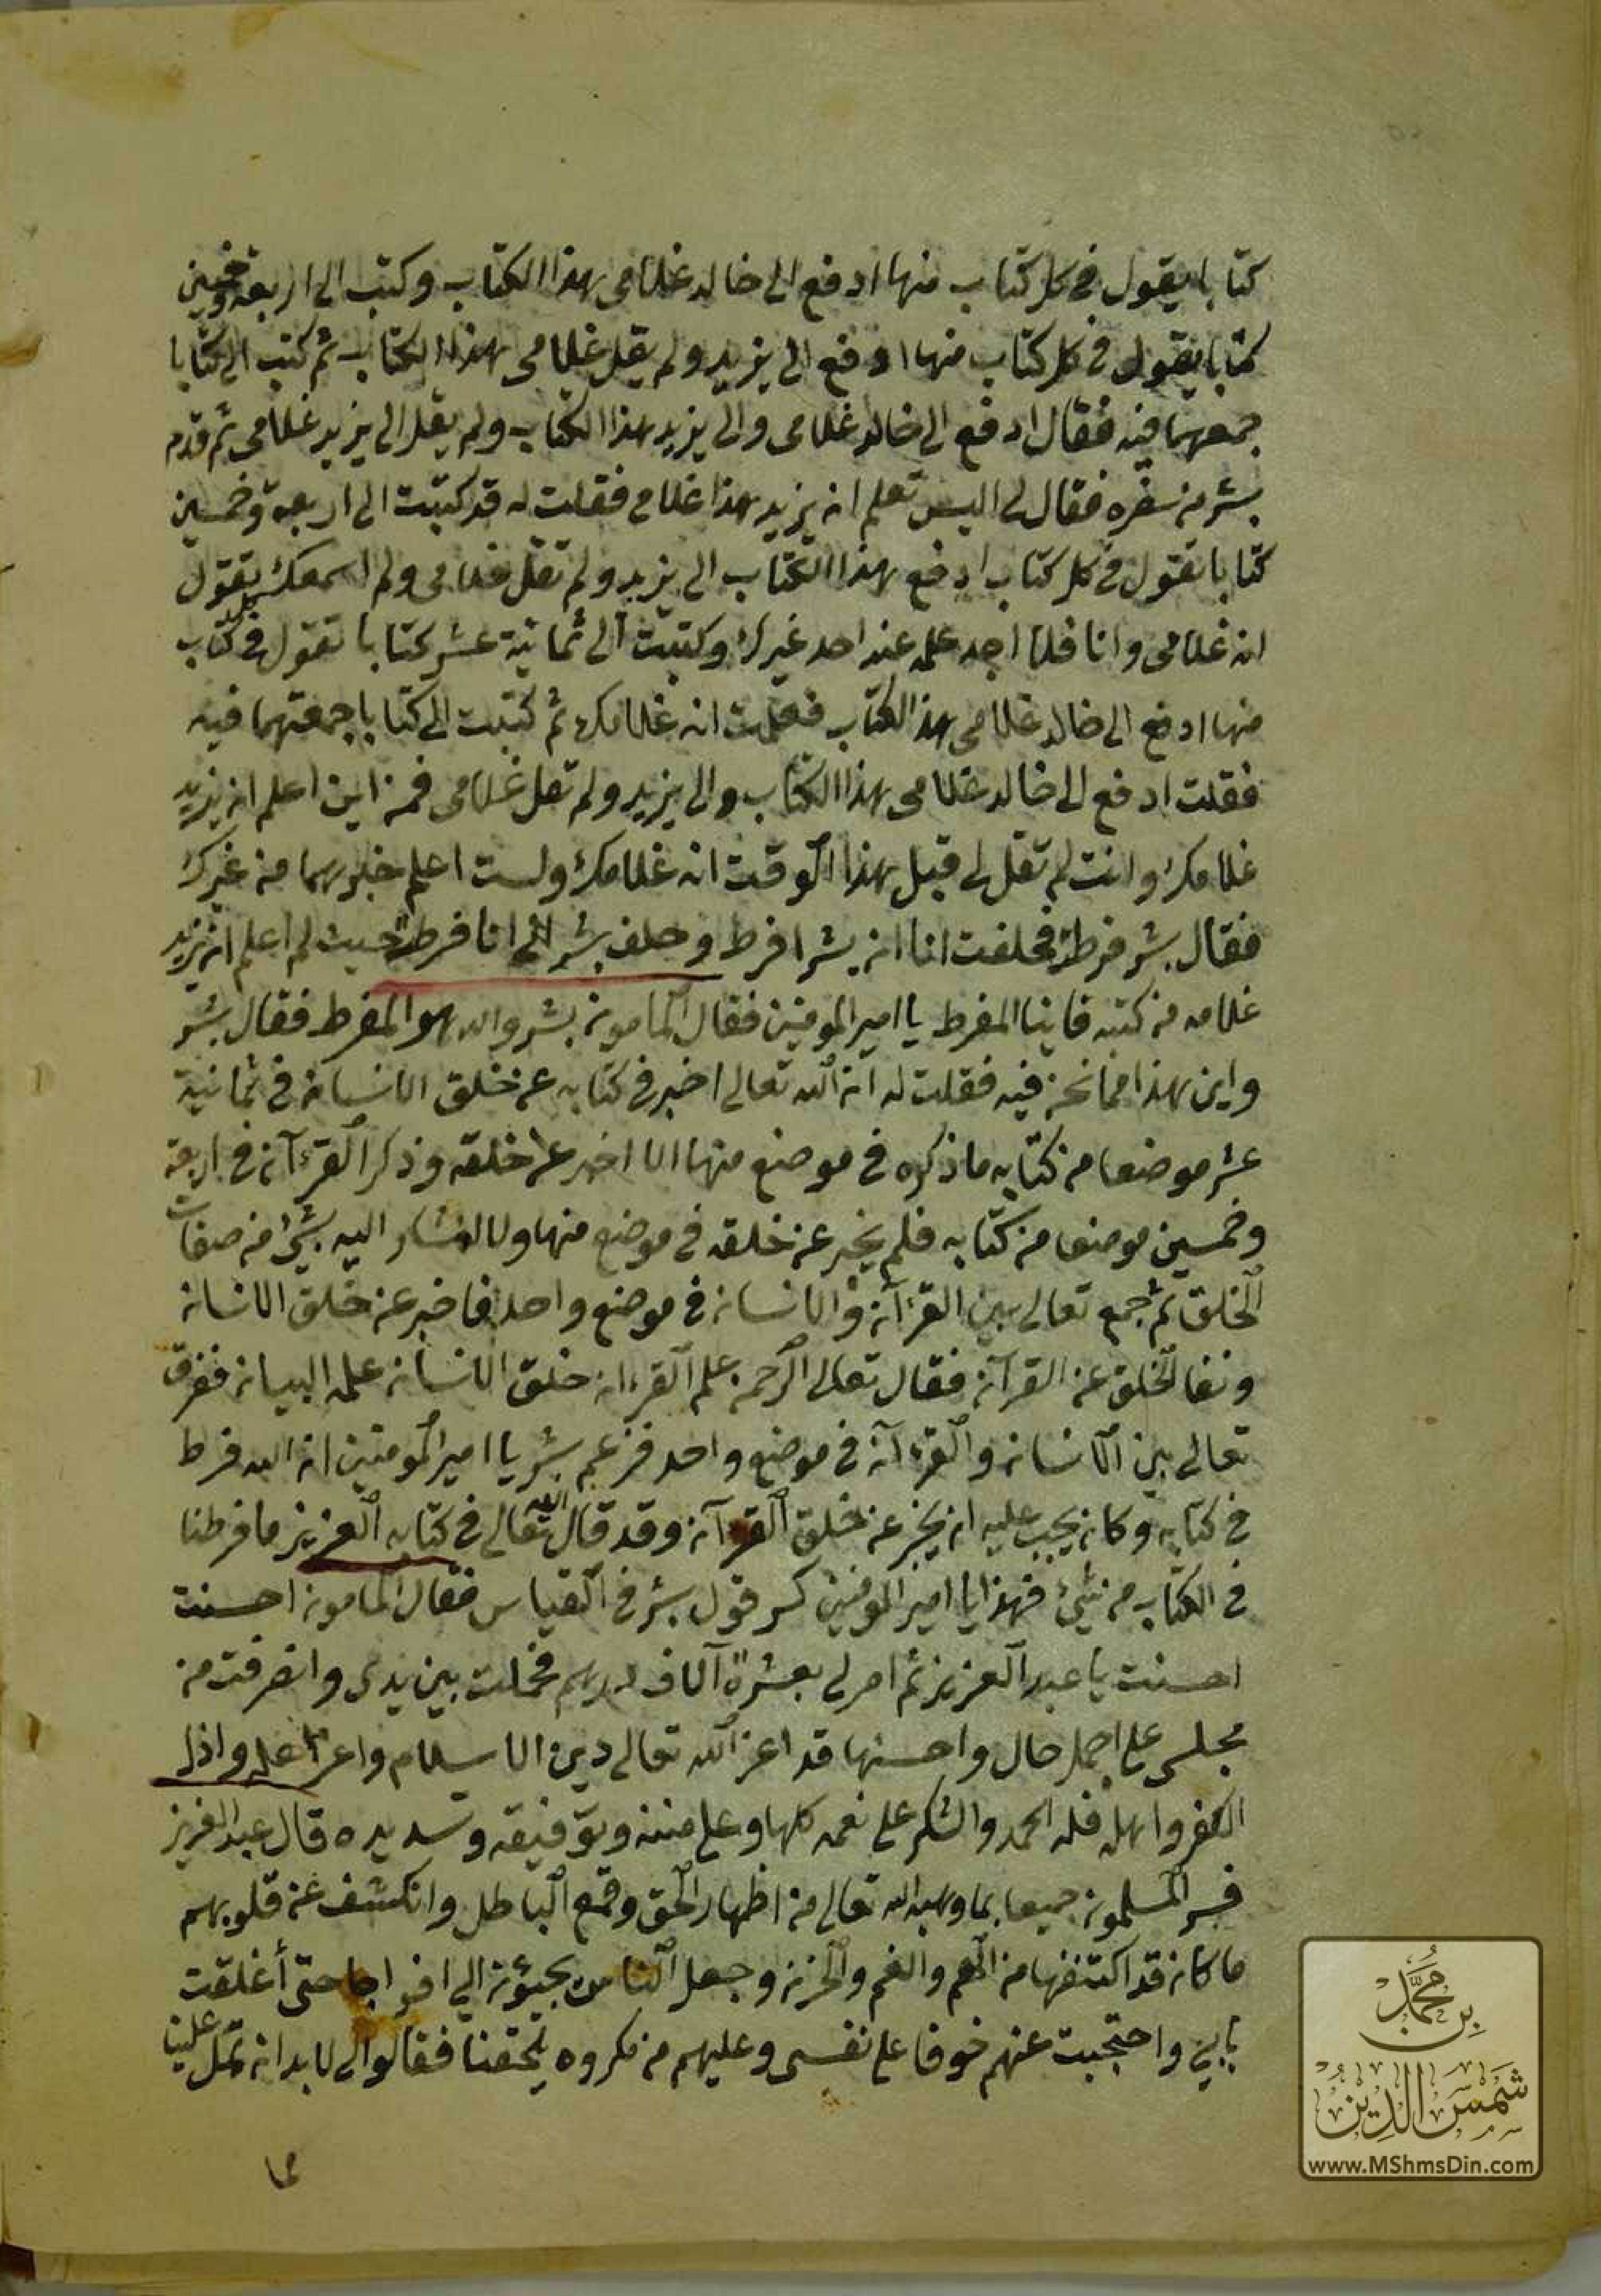 كتابا يقول في كل كتاب منها ادفع الى خالد غلامى هذا الكتاب وكتب الى اربعة وخمسين
كتابا يقول في كل كتاب منها ادفع الى يزيد ولم يقل غلامى هذا الكتاب ثم كتب الى كتابا
جمعهما فيه فقال ادفع الى خالد غلامى والى يزيد هذا الكتاب ولم يقل الى يزيد غلامى ثم قدم
بشر من سفره فقال لى اليس تعلم ان يزيد هذا غلامى فقلت له قد كتبت الى اربعة وخمسين
كتابا تقول في كل كتاب ادفع هذا الكتاب الى يزيد ولم تقل غلامى ولم اسمعك تقول
انه غلامى وانا فلا اجد علمه عند احد غيرك وكتبت الى ثمانية عشر كتابا تقول في كل كتاب
منها ادفع الى خالد غلامى هذا الكتاب فعلمت انه غلامك ثم كتبت الى كتابا جمعتهما فيه
فقلت ادفع الى خالد غلامى هذا الكتاب والى يزيد ولم تقل غلامى فمن اين اعلم ان يزيد
غلامك وانت لم تقل لى قبل هذا الوقت انه غلامك ولست اعلم خبرهما من غيرك
فقال بشر فرطت فحلفت انا ان بشرا فرط وحلف بشر انى انا فرطت حيث لم اعلم ان يزيد
غلامه من كتبه فاينا المفرط يا امير المومنين فقال المامون بشر والله هو المفرط فقال بشر
واين هذا مما نحن فيه فقلت له ان الله تعالى اخبر في كتابه عن خلق الانسان في ثمانية
عشر موضعا من كتابه ما ذكره في موضع منها الا اخبر عن خلقه وذكر القرءآن في اربعة
وخمسين موضعا من كتابه فلم يخبر عن خلقه في موضع منها ولا اشار اليه بشئ من صفات
الخلق ثم جمع تعالى بين القرءآن والانسان في موضع واحد فاخبر عن خلق الانسان
ونفا الخلق عن القرآن فقال تعالى الرحمن علم القرءان خلق الانسان علمه البيان ففرق
تعالى بين الانسان والقرءآن في موضع واحد فزعم بشر يا امير المومنين ان الله فرط
في كتابه وكان يجب عليه ان يخبر عن خلق القرءآن وقد قال الله تعالى في كتابه العزيز ما فرطنا
في الكتاب من شئ فهذا يا امير المومنين كسر قول بشر في القياس فقال المامون احسنت
احسنت يا عبد العزيز ثم امر لى بعشرة آلاف درهم فحملت بين يدى وانصرفت من
مجلسى على اجمل حال واحسنها قد اعز الله تعالى دين الاسلام واعز اهله واذل
الكفر واهله فلله الحمد والشكر على نعمه كلها وعلى مننه وتوفيقه وتسديده قال عبد العزيز
فسر المسلمون جميعا بما وهبه الله تعالى من اظهار الحق وقمع الباطل وانكشف عن قلوبهم
ما كان قد اكتنفها من الهم والغم والحزن وجعل الناس يجيؤن الي افواجا حتى أغلقت
بابي واحتجبت عنهم خوفا على نفسى وعليهم من مكروه يلحقنا فقالوا لى لا بد ان تمل علينا
ما
محمد
بن
شمس الدين
www.MShmsDin.com